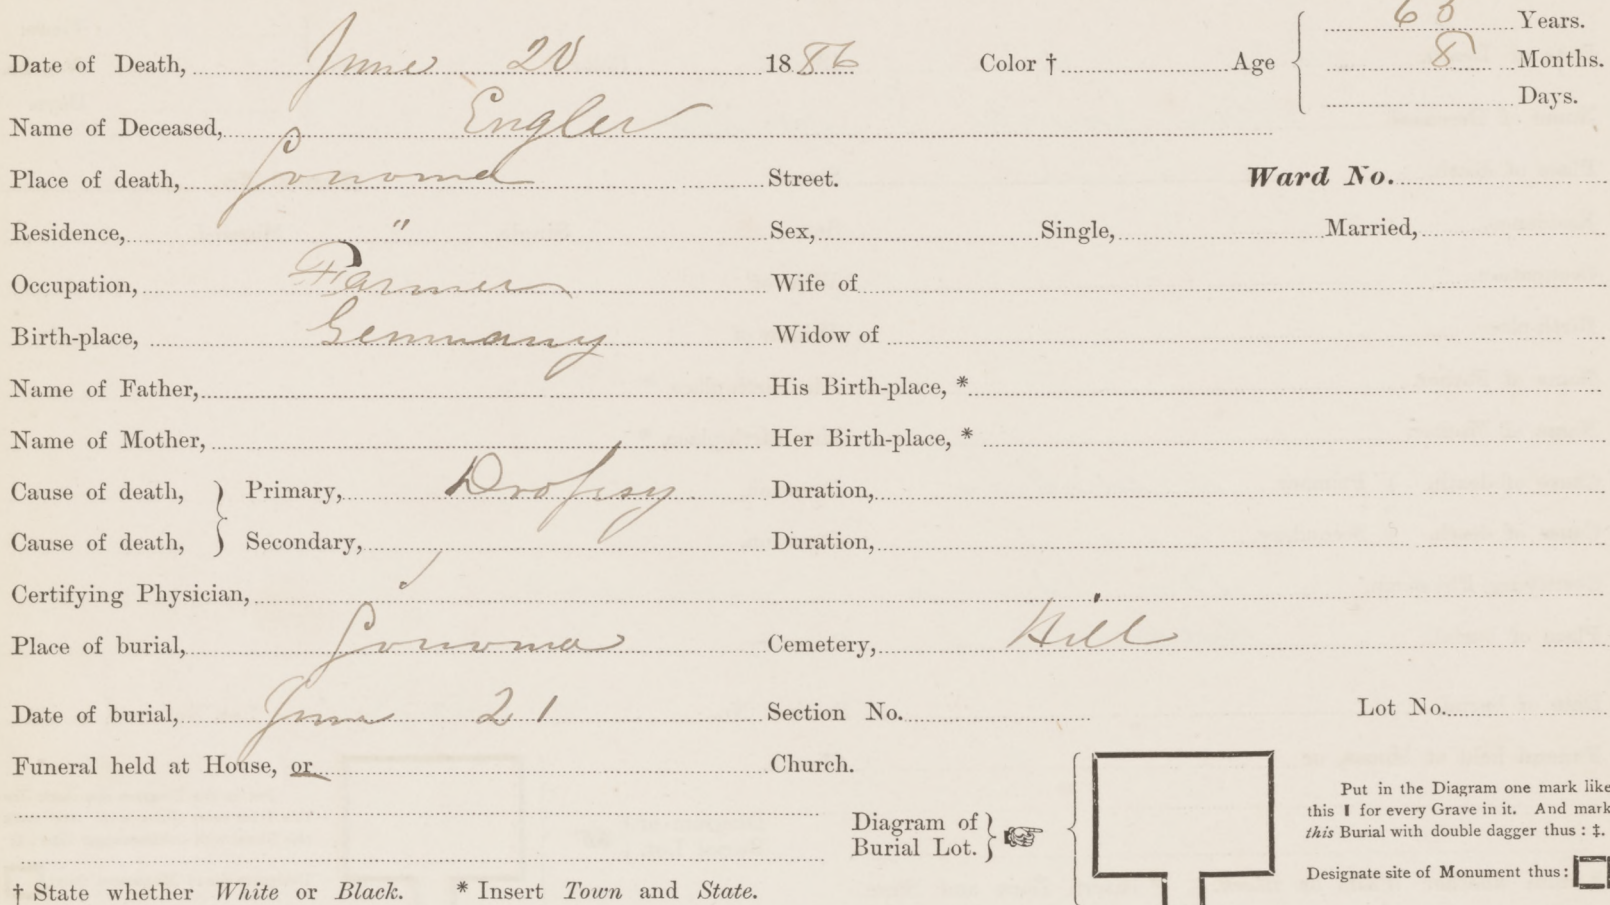 Years.
Date of Death, June 20 1886 Color † Age 8 Months.
Days.
Name of Deceased, Engler
Place of death, Sonoma Street. Ward No.
Residence, " Sex, Single, Married,
Occupation, Farmer Wife of
Birth-place, Germany Widow of
Name of Father, His Birth-place, *
Name of Mother, Her Birth-place, *
Cause of death, } Primary, Dropsy Duration,
Cause of death, } Secondary, Duration,
Certifying Physician,
Place of burial, Sonoma Cemetery, Hill
Date of burial, June 21 Section No. Lot No.
Funeral held at House, or Church.
Diagram of
Burial Lot. }
Put in the Diagram one mark like
this ▮ for every Grave in it. And mark
this Burial with double dagger thus : ‡.
Designate site of Monument thus :
† State whether White or Black. * Insert Town and State.